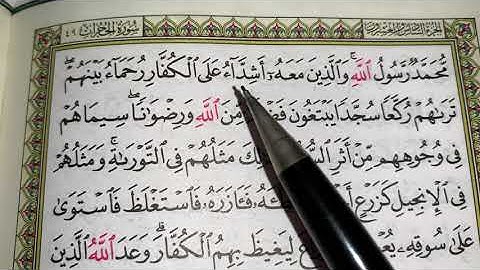 الجزء السادس والعشرون
سورة الحجرات ٤٩
مُّحَمَّدٌ رَّسُولُ ٱللَّهِۚ وَٱلَّذِينَ مَعَهُۥٓ أَشِدَّآءُ عَلَى ٱلۡكُفَّارِ رُحَمَآءُ بَيۡنَهُمۡۖ
تَرَىٰهُمۡ رُكَّعٗا سُجَّدٗا يَبۡتَغُونَ مِّنَ ٱللَّهِ وَرِضۡوَٰنٗاۖ سِيمَاهُمۡ
فِي وُجُوهِهِم مِّنۡ أَثَرِ مَثَلُهُمۡ فِي ٱلتَّوۡرَىٰةِۚ وَمَثَلُهُمۡ
فِي ٱلۡإِنجِيلِ كَزَرۡعٍ فَـَٔازَرَهُۥ فَٱسۡتَغۡلَظَ فَٱسۡتَوَىٰ
عَلَىٰ سُوقِهِۦ لِيَغِيظَ بِهِمُ ٱلۡكُفَّارَۗ وَعَدَ ٱللَّهُ ٱلَّذِينَ